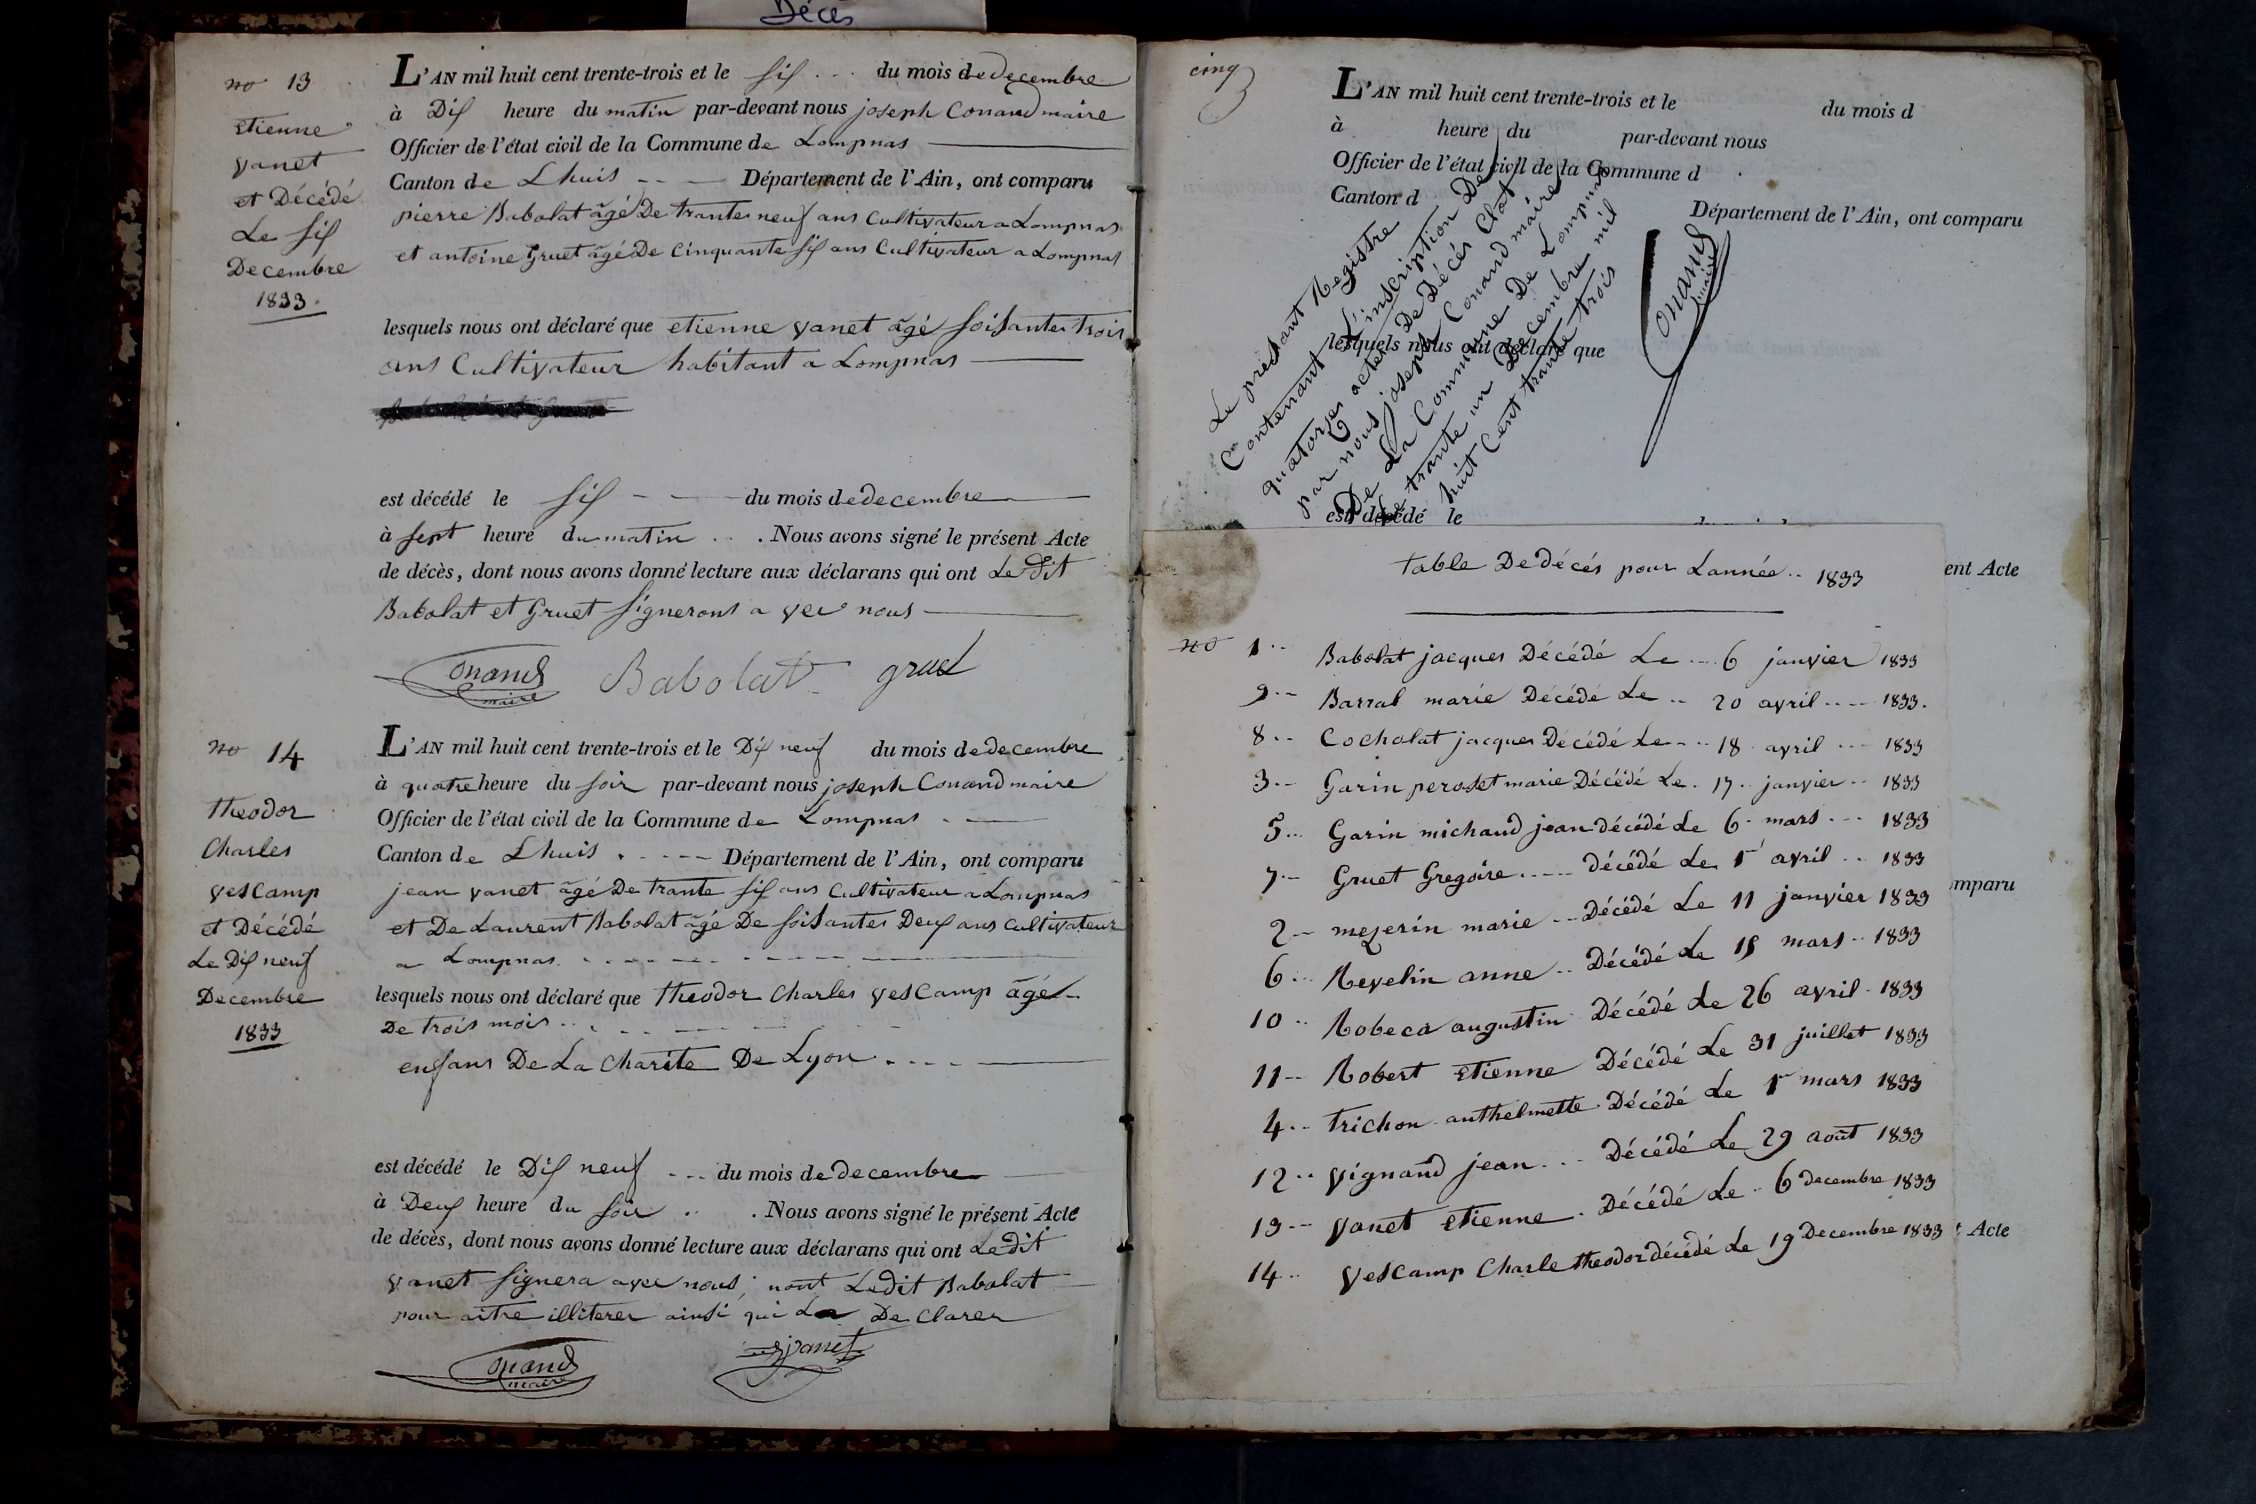 Décès
no 13
Etienne
vanet
et Décédé
Le six
Decembre
1833.
L'AN mil huit cent trente-trois et le six du mois de decembre
à Dix heure du matin par-devant nous joseph Conand maire
Officier de l'état civil de la Commune de Lompnas
Canton de Lhuis Département de l'Ain, ont comparu
pierre Babolat âgé De trante neuf ans Cultivateur a Lompnas
et antoine Gruet âgé De Cinquante six ans Cultivateur a Lompnas
lesquels nous ont déclaré que etienne vanet âgé soisante trois
ans Cultivateur habitant a Lompnas
est décédé le six du mois de decembre
à sept heure du matin . Nous avons signé le présent Acte
de décès, dont nous avons donné lecture aux déclarans qui ont Le dit
Babolat et Gruet signeront a vec nous
Conand maire Babolat gruet
no 14
theodor
Charles
vescamp
et Décédé
Le Dix neuf
Decembre
1833
L'AN mil huit cent trente-trois et le Dix neuf du mois de decembre
à quatre heure du soir par-devant nous joseph Conand maire
Officier de l'état civil de la Commune de Lompnas
Canton de Lhuis Département de l'Ain, ont comparu
jean vanet âgé De trante six ans Cultivateur a Lompnas
et De Laurent Babolat âgé De soisante Deux ans Cultivateur
a Lompnas
lesquels nous ont déclaré que theodor Charles vescamp âgé
De trois mois
enfans De La Charite De Lyon
est décédé le Dix neuf du mois de decembre
à Deux heure du soir . Nous avons signé le présent Acte
de décès, dont nous avons donné lecture aux déclarans qui ont Le dit
vanet signera avec nous, nont Ledit Babolat
pour aitre illiterer ainsi qui La De Clarer
Conand maire vanet
cinq
L'AN mil huit cent trente-trois et le du mois d
à heure du par-devant nous
Officier de l'état civil de la Commune d
Canton d
Département de l'Ain, ont comparu
Le présant Registre
Contenant L'inscription De
quatorzes actes De Décés Clot
par nous joseph Conand maire
De La Commune De Lompnas
Le trante un Decembre mil
huit Cent trante trois
Conand maire
lesquels nous ont déclaré que
est décédé le
ent Acte
table De décés pour Lannée 1833
no 1 Babolat jacques Décédé Le 6 janvier 1833
9 Barral marie Décédé Le 20 avril 1833.
8 Cocholat jacques Décédé Le 18 avril 1833
3 Garin peroset marie Décédé Le 17 janvier 1833
5 Garin michaud jean décédé Le 6 mars 1833
7 Gruet Gregoire décédé Le 1r avril 1833
2 mezerin marie Décédé Le 11 janvier 1833
omparu
6 Revelin anne Décédé Le 15 mars 1833
10 Robeca augustin Décédé Le 26 avril 1833
11 Robert Etienne Décédé Le 31 juillet 1833
4 trichon anthelmette Décédé Le 1r mars 1833
12 vignand jean Décédé Le 29 août 1833
13 vanet Etienne Décédé Le 6 decembre 1833
14 vescamp Charle theodor décédé Le 19 Decembre 1833
t Acte